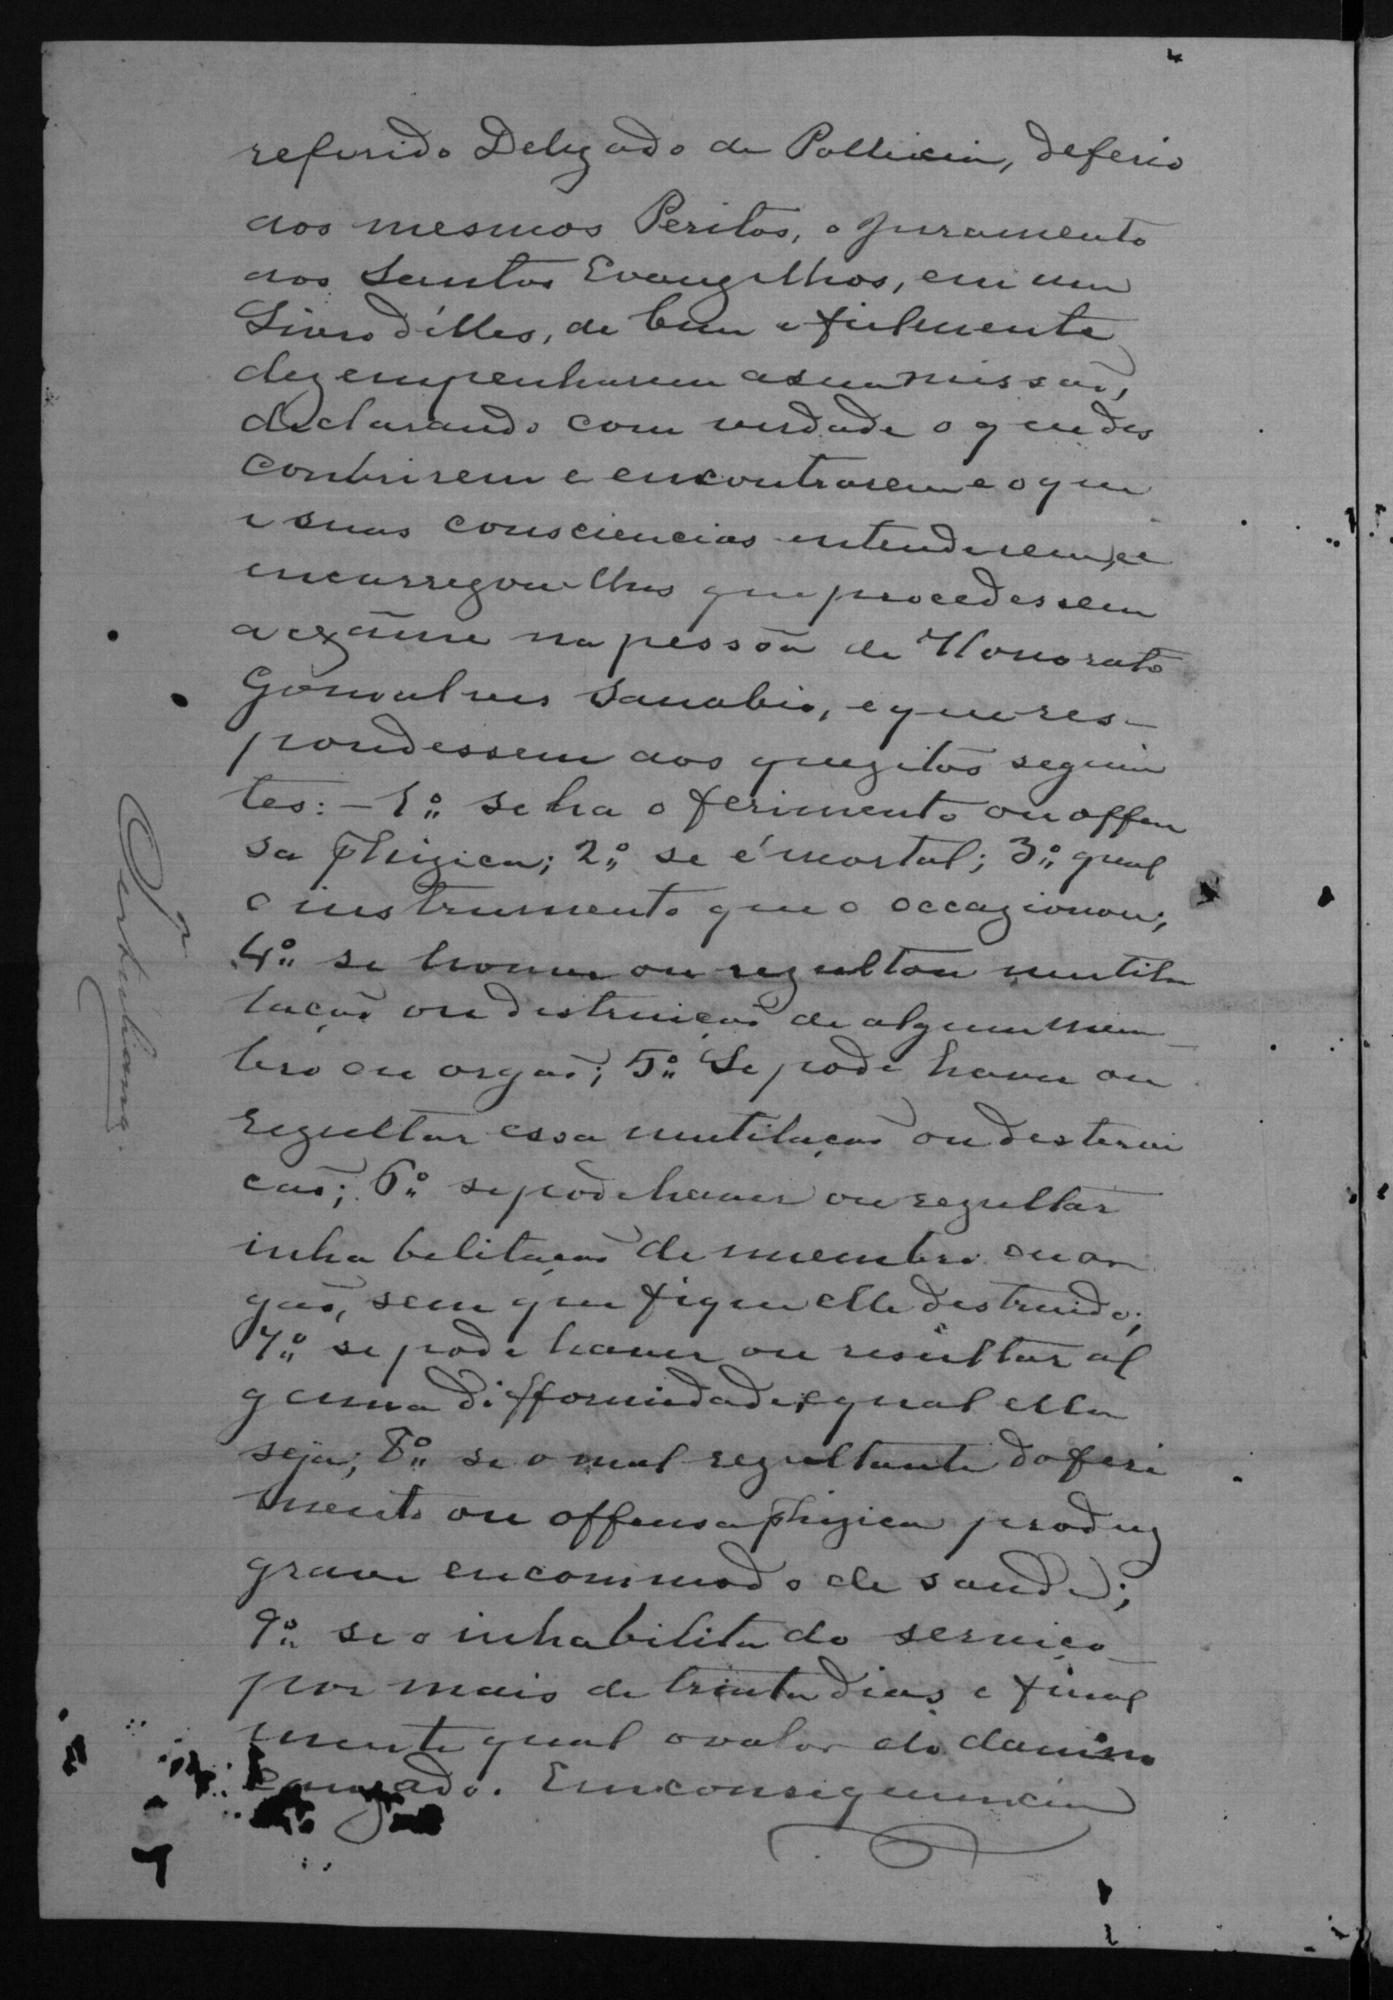 referido Delegado de Pollicia, deferio
aos mesmos Peritos, o juramento
aos Santos Evangelhos, em um
Livro d'elles, de bem e fielmente
dezempenharem a sua missão,
declarando com verdade o que des
cobrirem e encontrarem e o que
e suas consciencias entenderem, e
encarregou-lhes que procedessem
a exâme na pessôa de Honorato
Gonsalves Sanabio, e que res-
pondessem aos quezitos seguin
tes: - 1º se ha o ferimento ou offen
sa phizica; 2º se é mortal; 3º qual
o instrumento que o occazionou;
4º se houve ou rezultou mutila
lação ou destruição de algum mem_
bro ou orgão; 5º Se pode haver ou
rezultar essa mutilação ou destrui
cão; 6º se pode haver ou rezultar
inhabelitação de membro ou or
gão, sem que fique elle destruido;
7º se pode haver ou resultar al
guma difformidade, e qual ella
seja; 8º se o mal rezultante do feri
mento ou offensa phizica produz
grave encommodo de saude;
9º se o inhabilita do serviço
por mais de trinta dias e final
mente qual o valor do damno
cauzado. Em consequencia